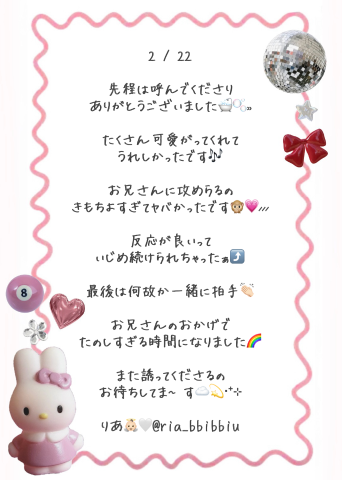 2 / 22
先程は呼んでくださり
ありがとうございました🛁🫧𓈒𓂂
たくさん可愛がってくれて
うれしかったです🎶
お兄さんに攻めらるの
きもちよすぎてヤバかったです🙊💗///
反応が良いって
いじめ続けられちゃったぁ⤴️
最後は何故か一緒に拍手👏🏻
お兄さんのおかげで
たのしすぎる時間になりました🌈
また誘ってくださるの
お待ちしてま~ す☁️💫‧˚₊⊹
りあ👶🏻🤍@ria_bbibbiu
8